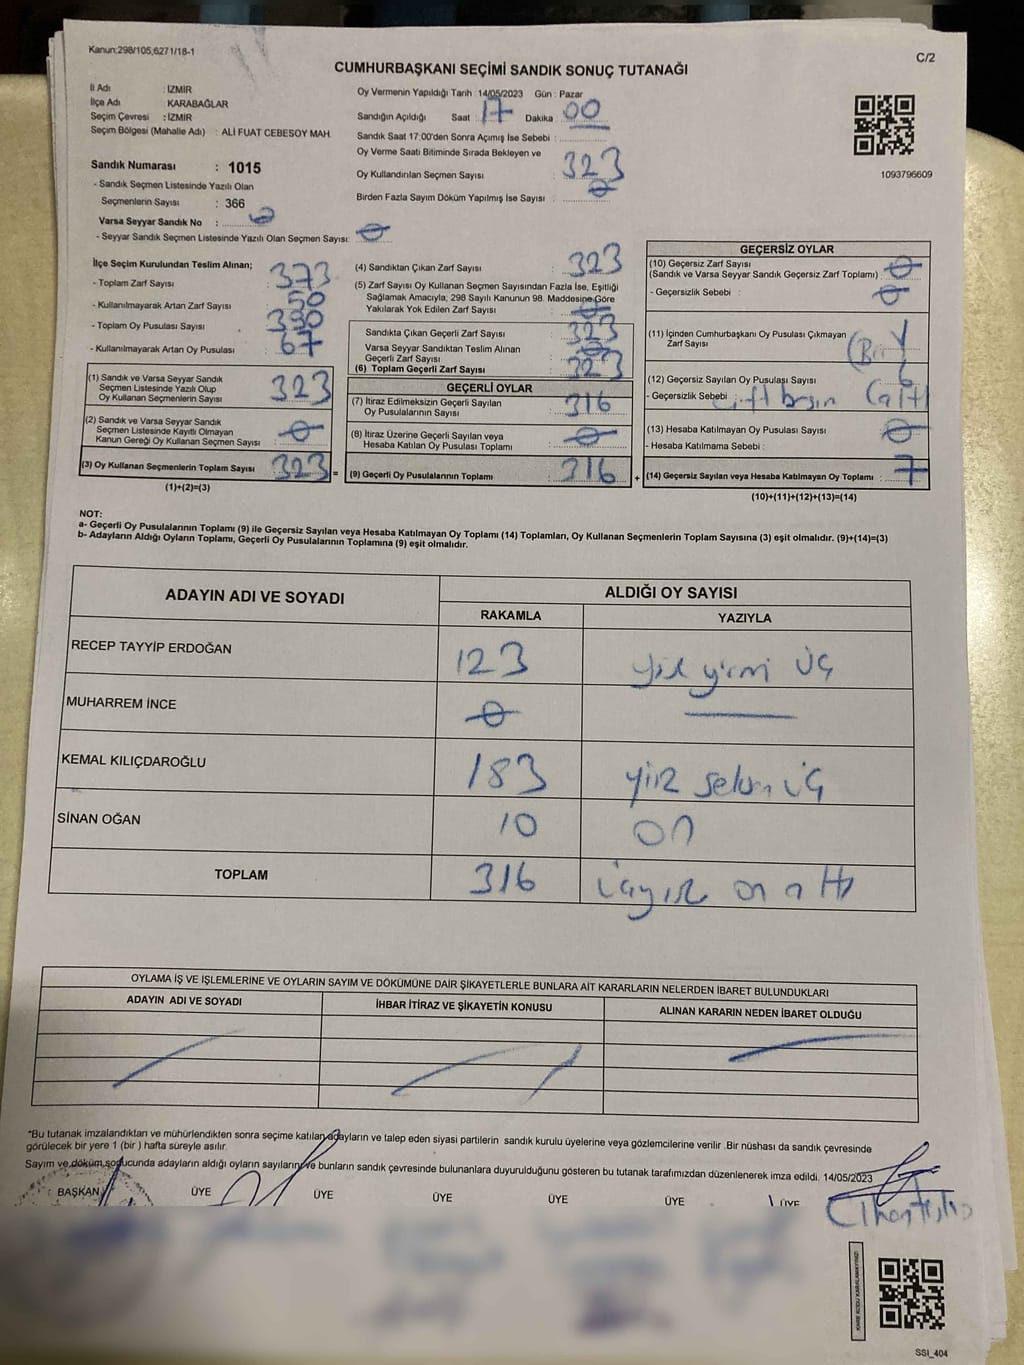 Kanun:298/105,6271/18-1
C/2
CUMHURBAŞKANI SEÇİMİ SANDIK SONUÇ TUTANAĞI
İl Adı : İZMİR
İlçe Adı : KARABAĞLAR
Seçim Çevresi : İZMİR
Seçim Bölgesi (Mahalle Adı) : ALİ FUAT CEBESOY MAH.
Sandık Numarası : 1015
- Sandık Seçmen Listesinde Yazılı Olan
Seçmenlerin Sayısı : 366
Varsa Seyyar Sandık No : 0
- Seyyar Sandık Seçmen Listesinde Yazılı Olan Seçmen Sayısı: 0
Oy Vermenin Yapıldığı Tarih : 14/05/2023 Gün : Pazar
Sandığın Açıldığı Saat : 17 Dakika : 00
Sandık Saat 17:00'den Sonra Açımış İse Sebebi :
Oy Verme Saati Bitiminde Sırada Bekleyen ve
Oy Kullandırılan Seçmen Sayısı : 323
Birden Fazla Sayım Döküm Yapılmış İse Sayısı : 0
1093796609
İlçe Seçim Kurulundan Teslim Alınan;
- Toplam Zarf Sayısı : 373
- Kullanılmayarak Artan Zarf Sayısı : 50
- Toplam Oy Pusulası Sayısı : 330
- Kullanılmayarak Artan Oy Pusulası : 67
(1) Sandık ve Varsa Seyyar Sandık
Seçmen Listesinde Yazılı Olup
Oy Kullanan Seçmenlerin Sayısı : 323
(2) Sandık ve Varsa Seyyar Sandık
Seçmen Listesinde Kayıtlı Olmayan
Kanun Gereği Oy Kullanan Seçmen Sayısı : 0
(3) Oy Kullanan Seçmenlerin Toplam Sayısı : 323 =
(1)+(2)=(3)
(4) Sandıktan Çıkan Zarf Sayısı : 323
(5) Zarf Sayısı Oy Kullanan Seçmen Sayısından Fazla İse, Eşitliği
Sağlamak Amacıyla; 298 Sayılı Kanunun 98. Maddesine Göre
Yakılarak Yok Edilen Zarf Sayısı : 0
Sandıkta Çıkan Geçerli Zarf Sayısı : 323
Varsa Seyyar Sandıktan Teslim Alınan
Geçerli Zarf Sayısı : 0
(6) Toplam Geçerli Zarf Sayısı : 323
GEÇERLİ OYLAR
(7) İtiraz Edilmeksizin Geçerli Sayılan
Oy Pusulalarının Sayısı : 316
(8) İtiraz Üzerine Geçerli Sayılan veya
Hesaba Katılan Oy Pusulası Toplamı : 0
(9) Geçerli Oy Pusulalarının Toplamı : 316 +
GEÇERSİZ OYLAR
(10) Geçersiz Zarf Sayısı
(Sandık ve Varsa Seyyar Sandık Geçersiz Zarf Toplamı) : 0
- Geçersizlik Sebebi : 0
(11) İçinden Cumhurbaşkanı Oy Pusulası Çıkmayan
Zarf Sayısı : 1 (Bir)
(12) Geçersiz Sayılan Oy Pusulası Sayısı : 6
- Geçersizlik Sebebi : çift basım (altı)
(13) Hesaba Katılmayan Oy Pusulası Sayısı : 0
- Hesaba Katılmama Sebebi :
(14) Geçersiz Sayılan veya Hesaba Katılmayan Oy Toplamı : 7
(10)+(11)+(12)+(13)=(14)
NOT:
a- Geçerli Oy Pusulalarının Toplamı (9) ile Geçersiz Sayılan veya Hesaba Katılmayan Oy Toplamı (14) Toplamları, Oy Kullanan Seçmenlerin Toplam Sayısına (3) eşit olmalıdır. (9)+(14)=(3)
b- Adayların Aldığı Oyların Toplamı, Geçerli Oy Pusulalarının Toplamına (9) eşit olmalıdır.
ADAYIN ADI VE SOYADI
ALDIĞI OY SAYISI
RAKAMLA YAZIYLA
RECEP TAYYİP ERDOĞAN 123 yüz yirmi üç
MUHARREM İNCE 0
KEMAL KILIÇDAROĞLU 183 yüz seksen üç
SİNAN OĞAN 10 on
TOPLAM 316 üçyüz on altı
OYLAMA İŞ VE İŞLEMLERİNE VE OYLARIN SAYIM VE DÖKÜMÜNE DAİR ŞİKAYETLERLE BUNLARA AİT KARARLARIN NELERDEN İBARET BULUNDUKLARI
ADAYIN ADI VE SOYADI İHBAR İTİRAZ VE ŞİKAYETİN KONUSU ALINAN KARARIN NEDEN İBARET OLDUĞU
*Bu tutanak imzalandıktan ve mühürlendikten sonra seçime katılan adayların ve talep eden siyasi partilerin sandık kurulu üyelerine veya gözlemcilerine verilir .Bir nüshası da sandık çevresinde
görülecek bir yere 1 (bir ) hafta süreyle asılır.
Sayım ve döküm sonucunda adayların aldığı oyların sayılarını ve bunların sandık çevresinde bulunanlara duyurulduğunu gösteren bu tutanak tarafımızdan düzenlenerek imza edildi. 14/05/2023
BAŞKAN ÜYE ÜYE ÜYE ÜYE ÜYE ÜYE
KARE KODU KARALAMAYINIZ!
SSI_404